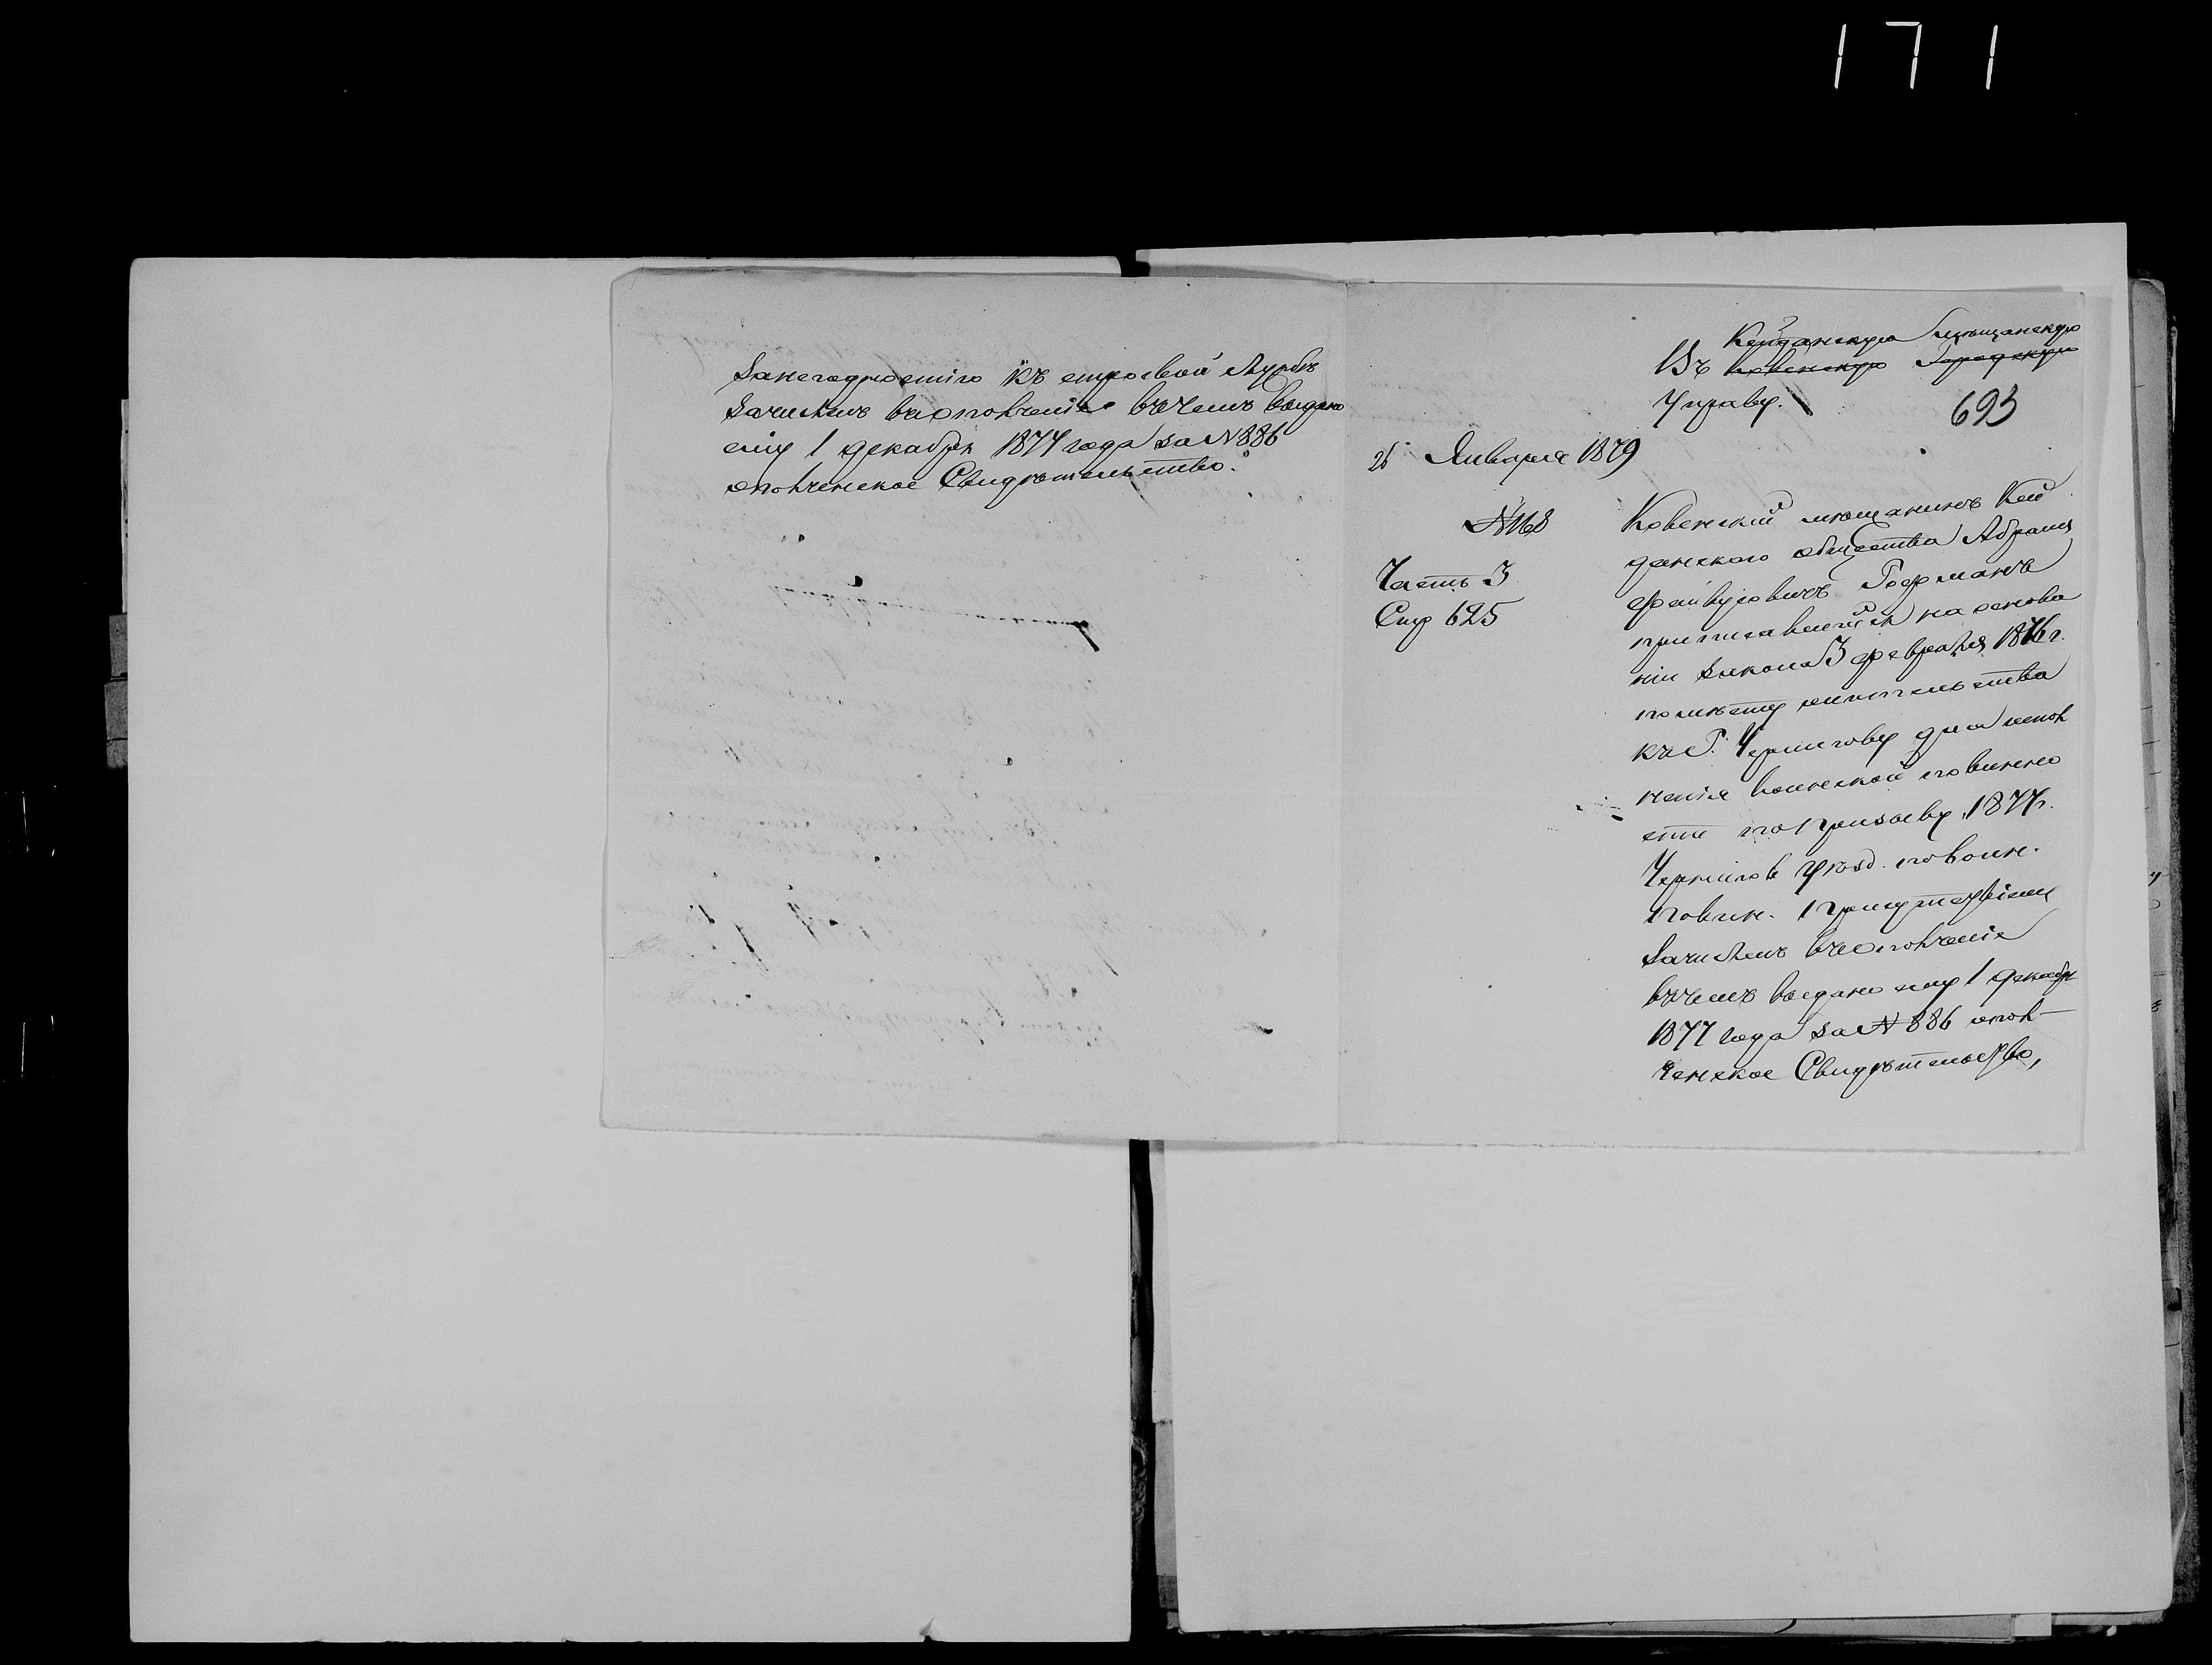 171
за негодностію къ строевой службѣ
зачисленъ въ ополченіе въ чемъ выдано
ему 1 декабря 1877 года за № 886
ополченское Свидѣтельство.
Кейданскую мѣщанскую
Въ Ковенскую Городскую
Управу.
693
26 Января 1879
№ 1168
Часть 3
Стр 625
Ковенскій мѣщанинъ Кей
данского общества Абрамъ
Файвусовичъ Гофманъ
приписавшійся на основа
ніи закона 3 февраля 1876 г.
по мѣсту жительства
къ Г. Чернигову для испол
ненія воинской повинно
сти по призыву 1877 г.
Чернигов уѣзд. по воин.
повин. присутствіемъ
зачисленъ въ ополченіе
въ чемъ выдано ему 1 декабря
1877 года за № 886 опол-
ченское Свидѣтельство,